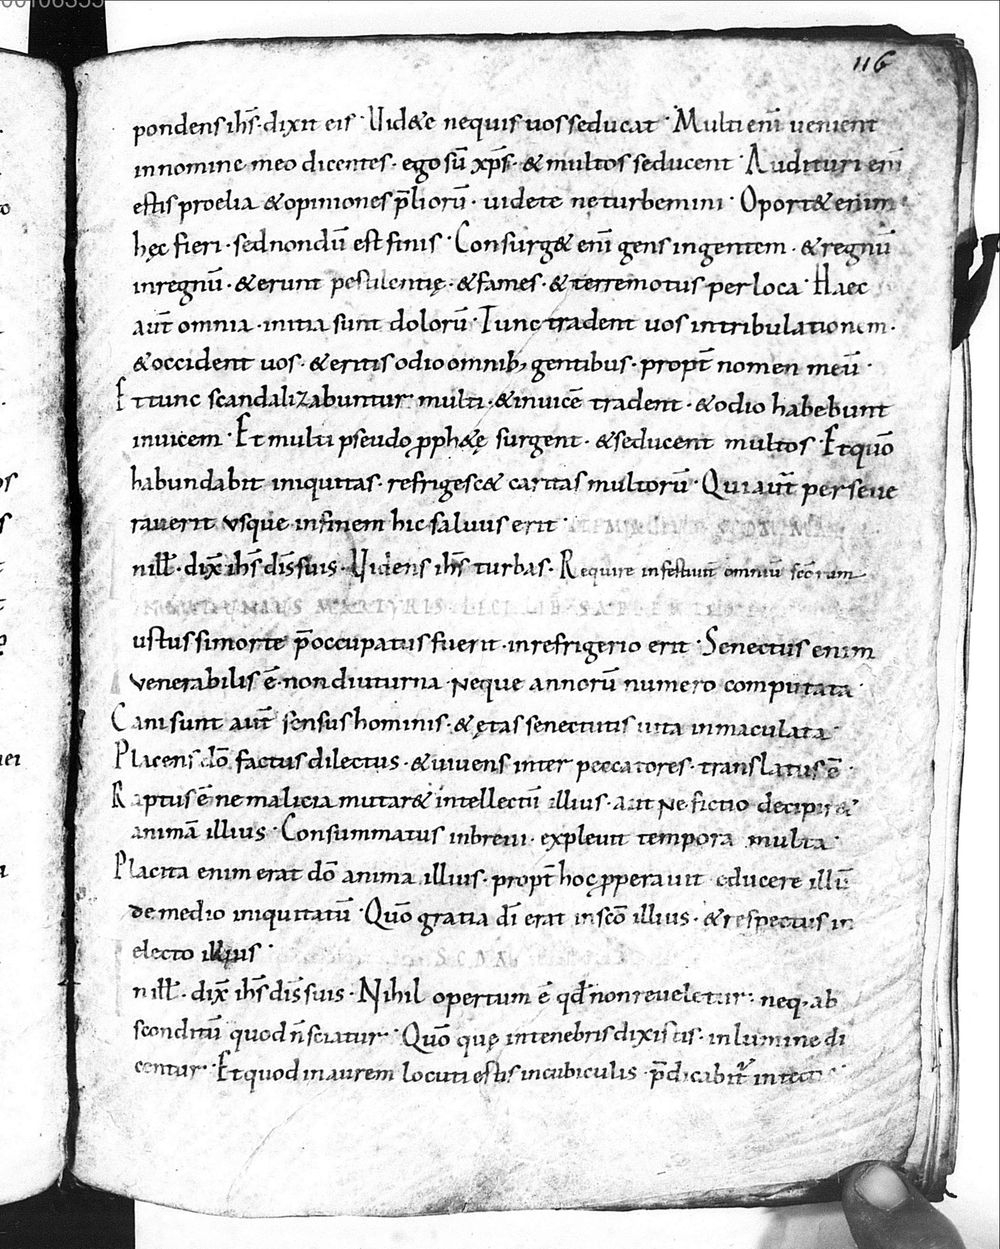 116
pondens ihs̄· dixit eis· Uid&e nequis uos seducat· Multi eni᷄ uenient
in nomine meo dicentes· ego sū xp̄s· & multos seducent· Audituri eni᷄
estis proelia & opiniones p̄liorū· uidete ne turbemini· Oport& enim
hęc fieri· sed nondū est finis· Consurg& eni᷄ gens in gentem· & regnū
in regnū· & erunt pestilentię· & fames· & terremotus per loca· Haec
aut̄ omnia· initia sunt dolorū· Tunc tradent uos in tribulationem·
& occident uos· & eritis odio omnib; gentibus· propt̄ nomen meū·
Et tunc scandalizabuntur multi· & inuicē tradent· & odio habebunt
inuicem· Et multi pseudo ꝓph&ę surgent· & seducent multos· Et quō
habundabit iniquitas· refrigesc& caritas multorū· Qui aut̄ perseue
rauerit usque in finem hic saluus erit·
n ill̄· dix̄ ihs̄ dis̄ suis· Uidens ihs̄ turbas· Require in festiuit̄ omniū sc̄orum
ustus si morte p̄occupatus fuerit· in refrigerio erit· Senectus enim
uenerabilis ē· non diuturna· Neque annorū numero computata·
Cani sunt aut̄ sensus hominis· & ętas senectutis uita inmaculata·
Placens dō factus dilectus· & uiuens inter peccatores· translatus ē·
Raptus ē ne malicia mutar& intellectū illius· aut ne fictio decipir&
animā illius· Consummatus in breui· expleuit tempora multa·
Placita enim erat dō anima illius· propt̄ hoc ꝓperauit educere illū
de medio iniquitatū· Quō gratia dī erat in sc̄o illius· & respectus in
electo illius·
n ill̄· dix̄ ihs̄ dis̄ suis· Nihil opertum ē qd̄ non reueletur· neq· ab
sconditū quod n̄ sciatur· Quō quę in tenebris dixistis· in lumine di
centur· Et quod in aurem locuti estis in cubiculis· p̄dicabit̄ in tectis